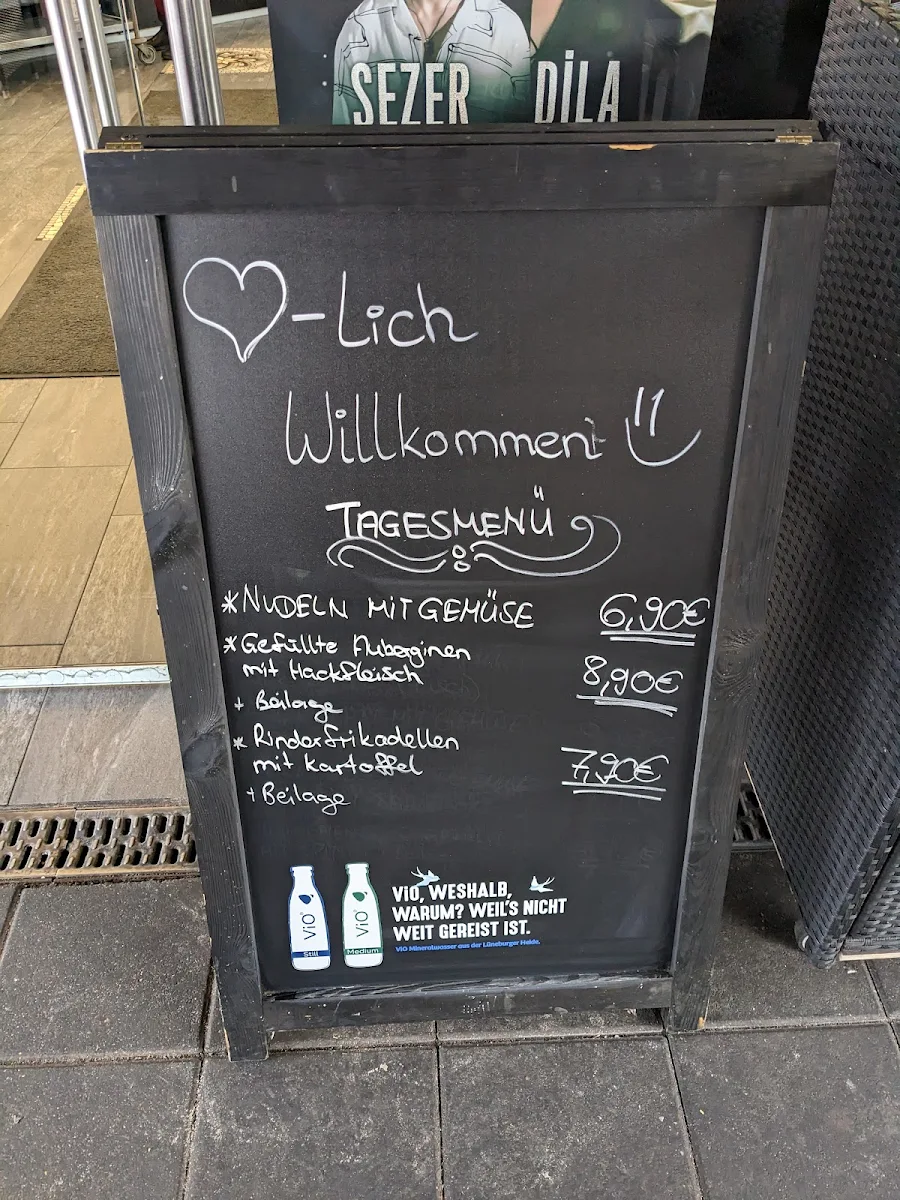 SEZER DİLA
♡-Lich
Willkommen
TAGESMENÜ
*NUDELN MIT GEMÜSE 6,90€
*Gefüllte Auberginen
mit Hackfleisch 8,90€
+ Beilage
*Rinderfrikadellen
mit Kartoffel 7,90€
+ Beilage
ViO
Still
ViO
Medium
ViO, WESHALB,
WARUM? WEIL'S NICHT
WEIT GEREIST IST.
ViO Mineralwasser aus der Lüneburger Heide.